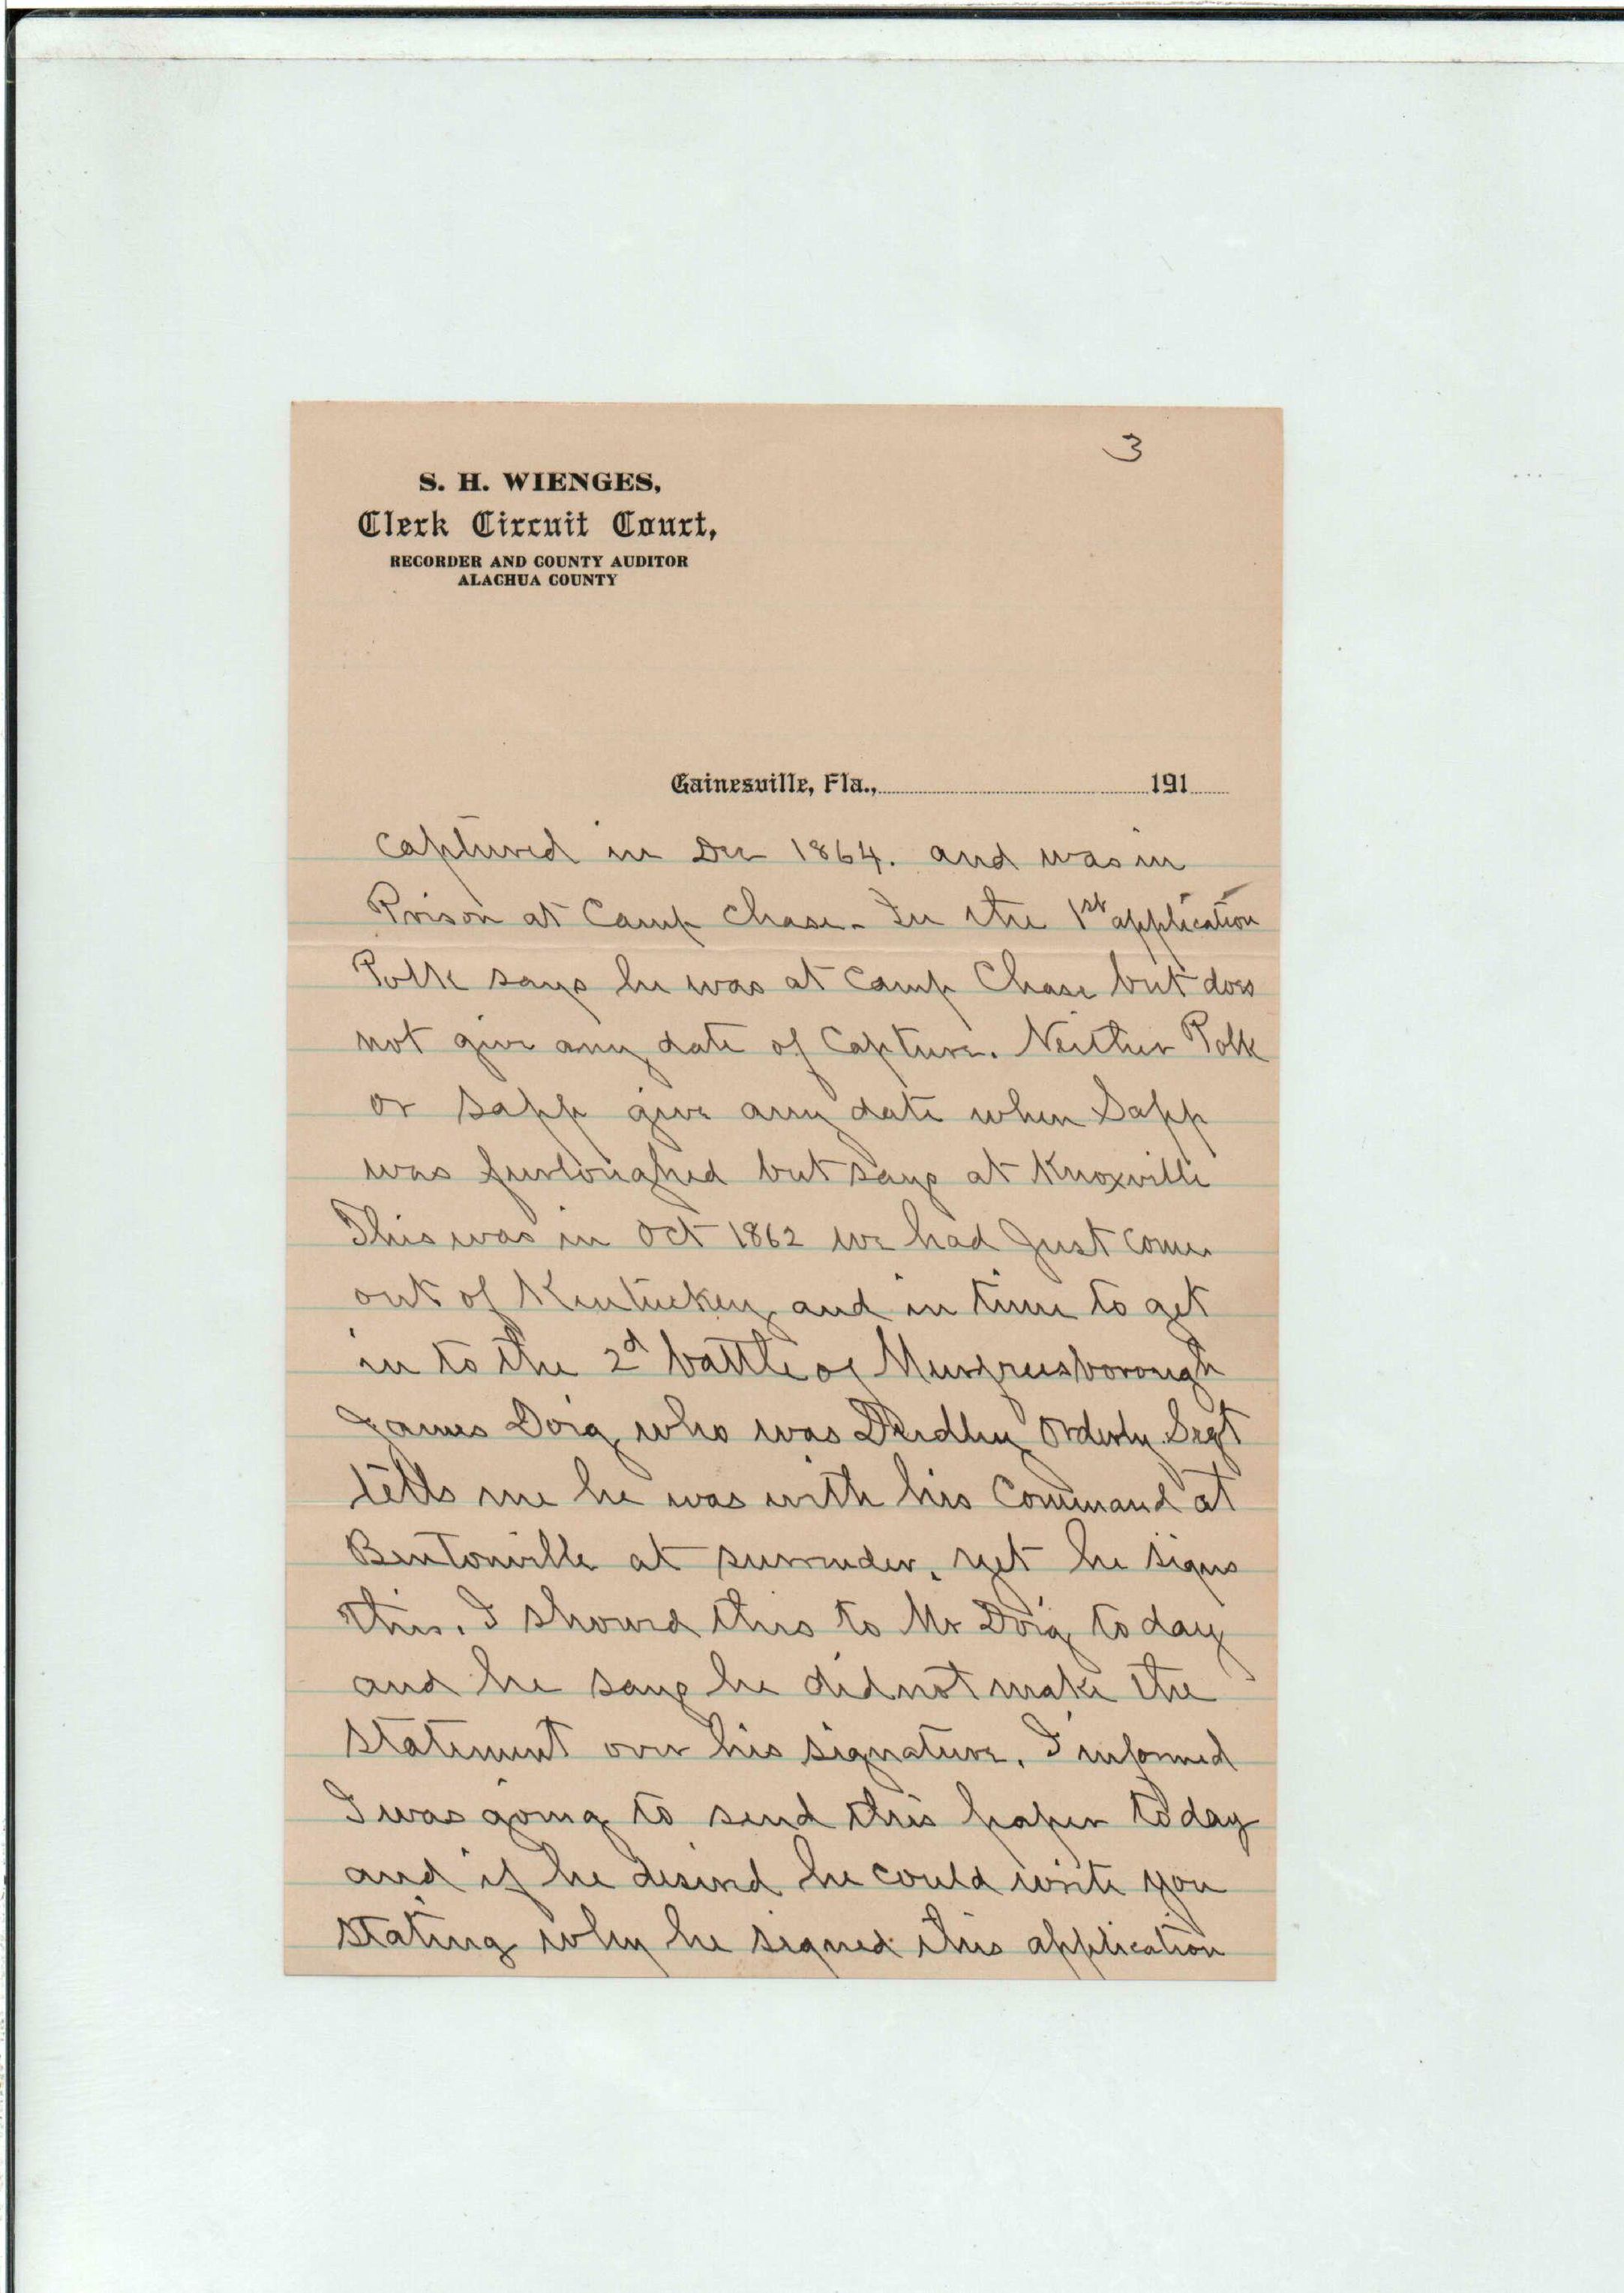 3
S. H. WIENGES,
Clerk Circuit Court,
RECORDER AND COUNTY AUDITOR
ALACHUA COUNTY
Gainesville, Fla., 191
captured in Dec 1864. and was in
Prison at Camp Chase. In the 1st application
Polk says he was at Camp Chase but does
not give any date of Capture. Neither Polk
or Sapp give any date when Sapp
was furloughed but says at Knoxville
This was in Oct 1862 we had Just come
out of Kentuckey and in time to get
in to the 2d battle of Murfreesborough
James Doig who was Orderly Sergt
tells me he was with his Command at
Bentonville at surrender, yet he signs
this. I showed this to Mr Doig to day
and he says he did not make the
statement over his signature. I informed
I was going to send this paper today
and if he desired he could write you
stating why he signed this application